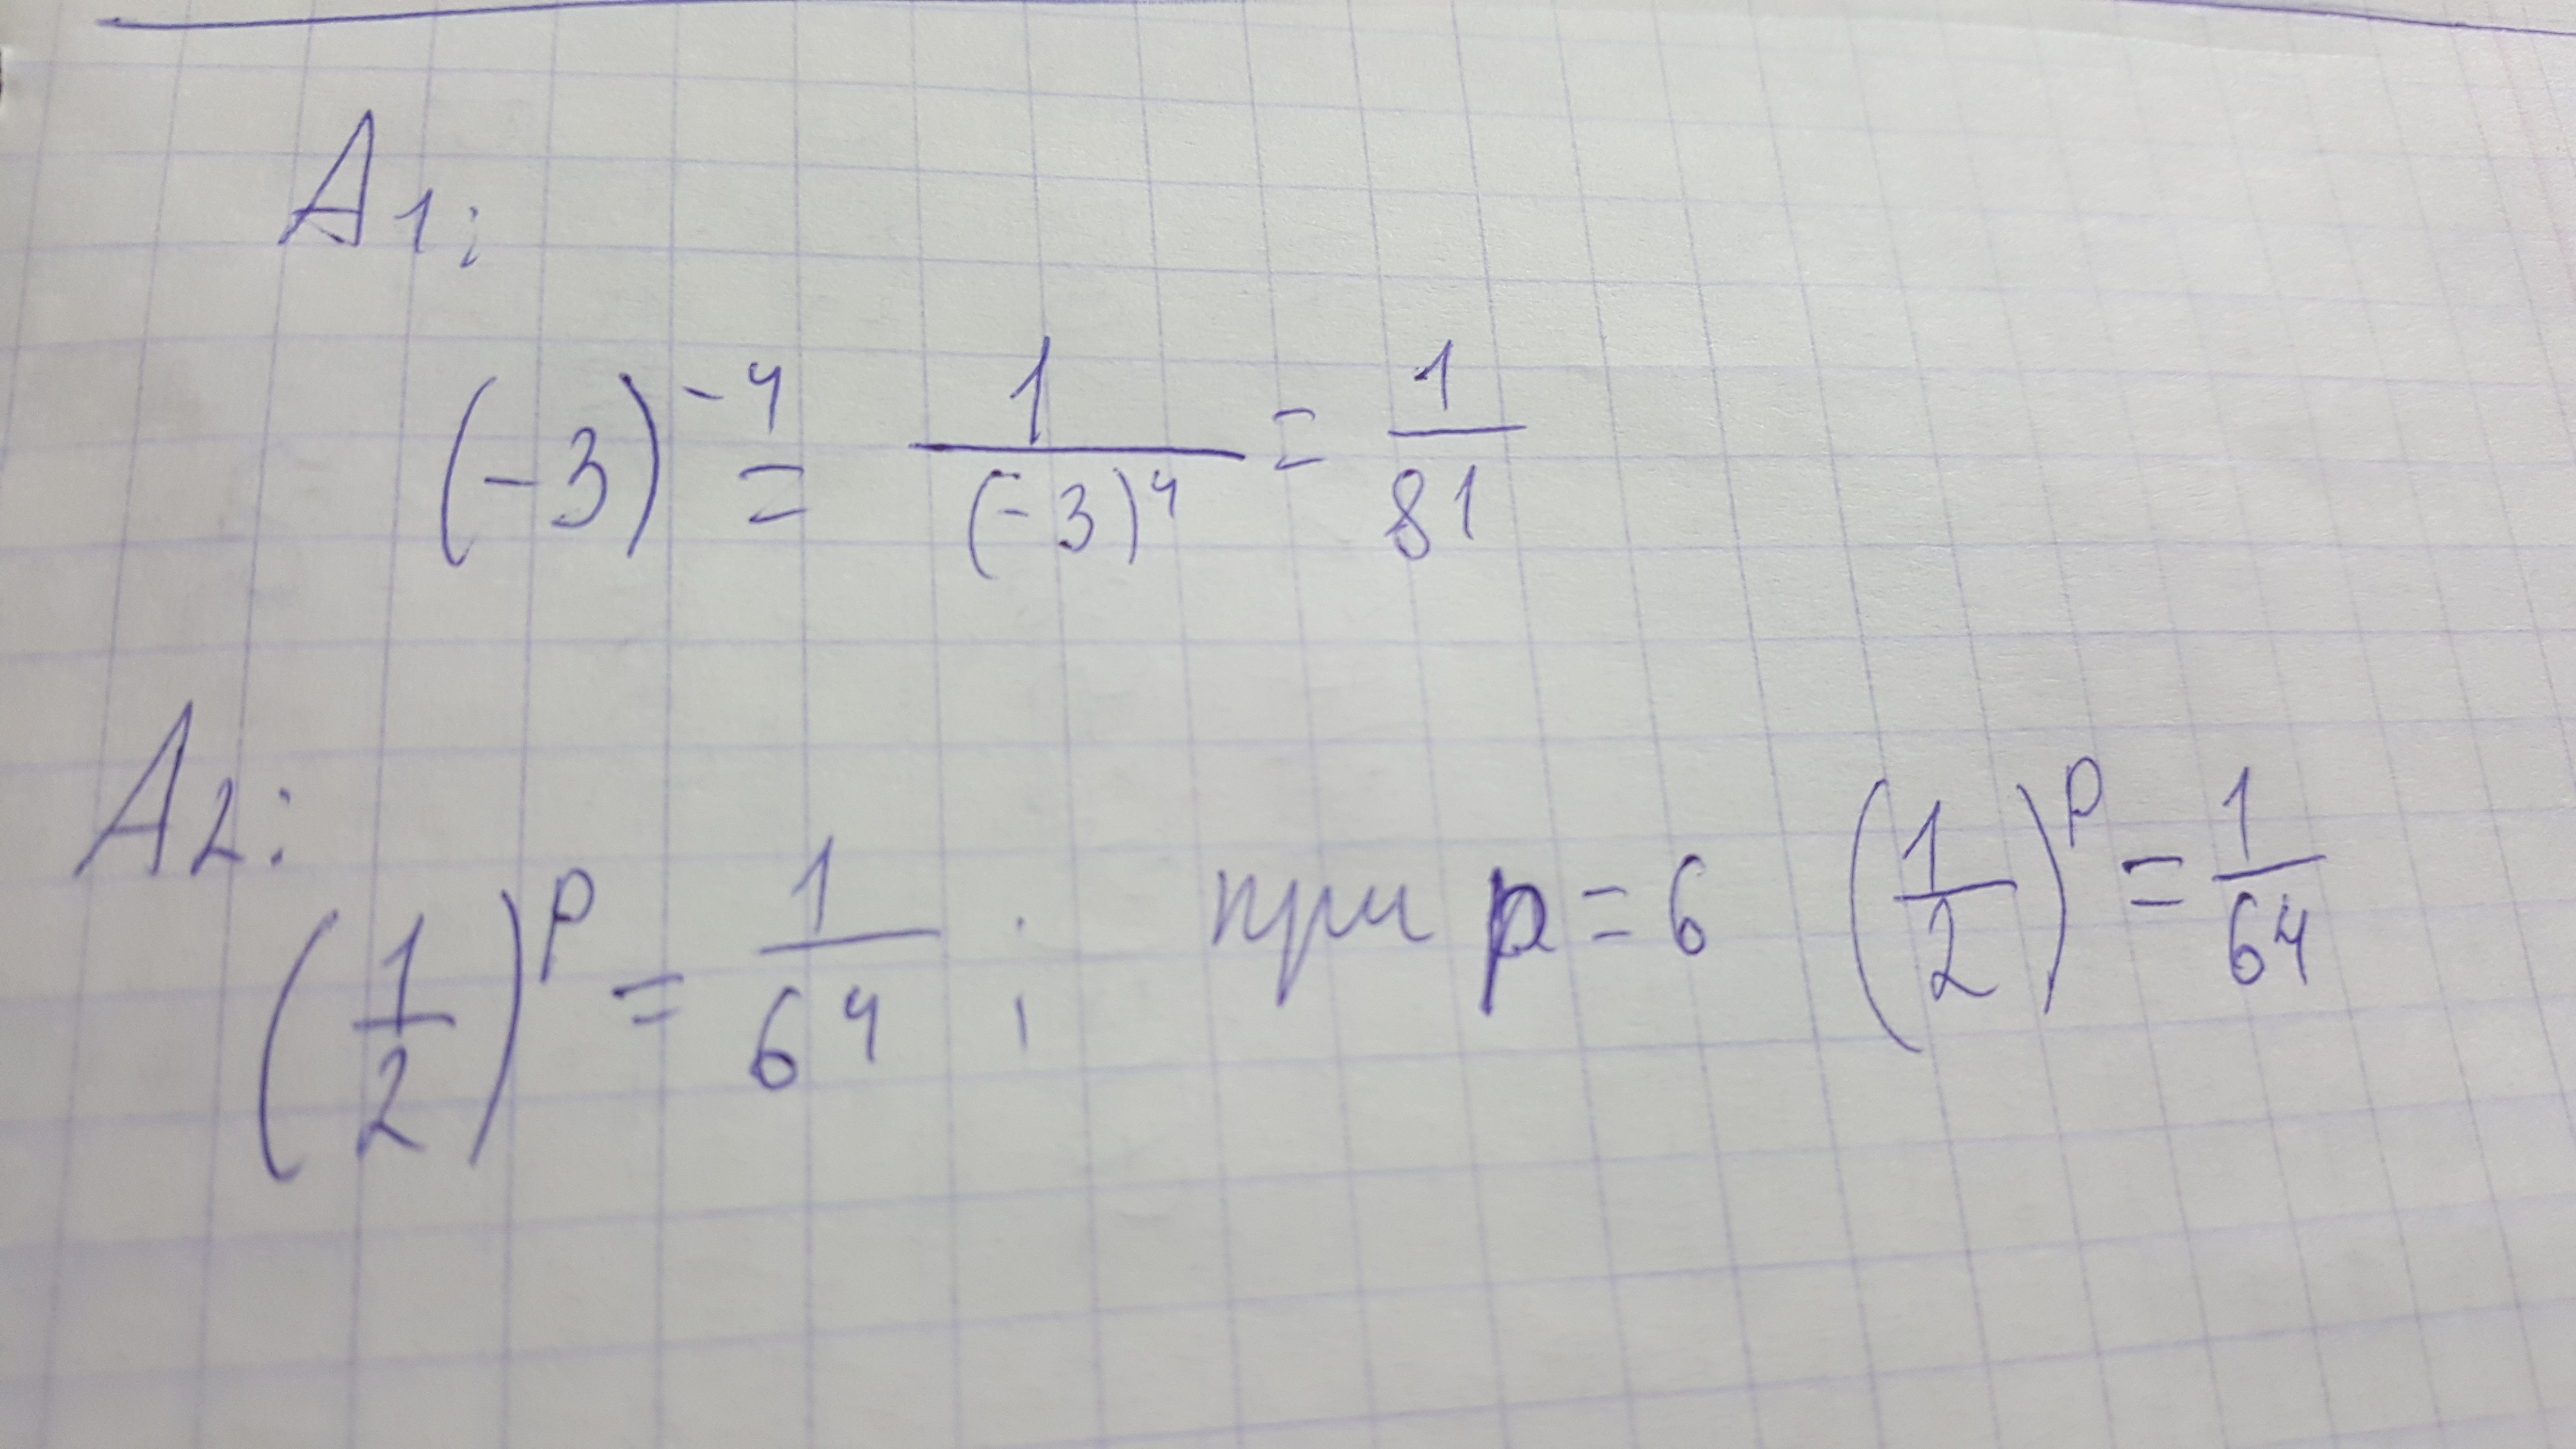 A1:
(-3)^-4 = 1/(-3)^4 = 1/81
A2:
(1/2)^p = 1/64 ; при p = 6 (1/2)^p = 1/64